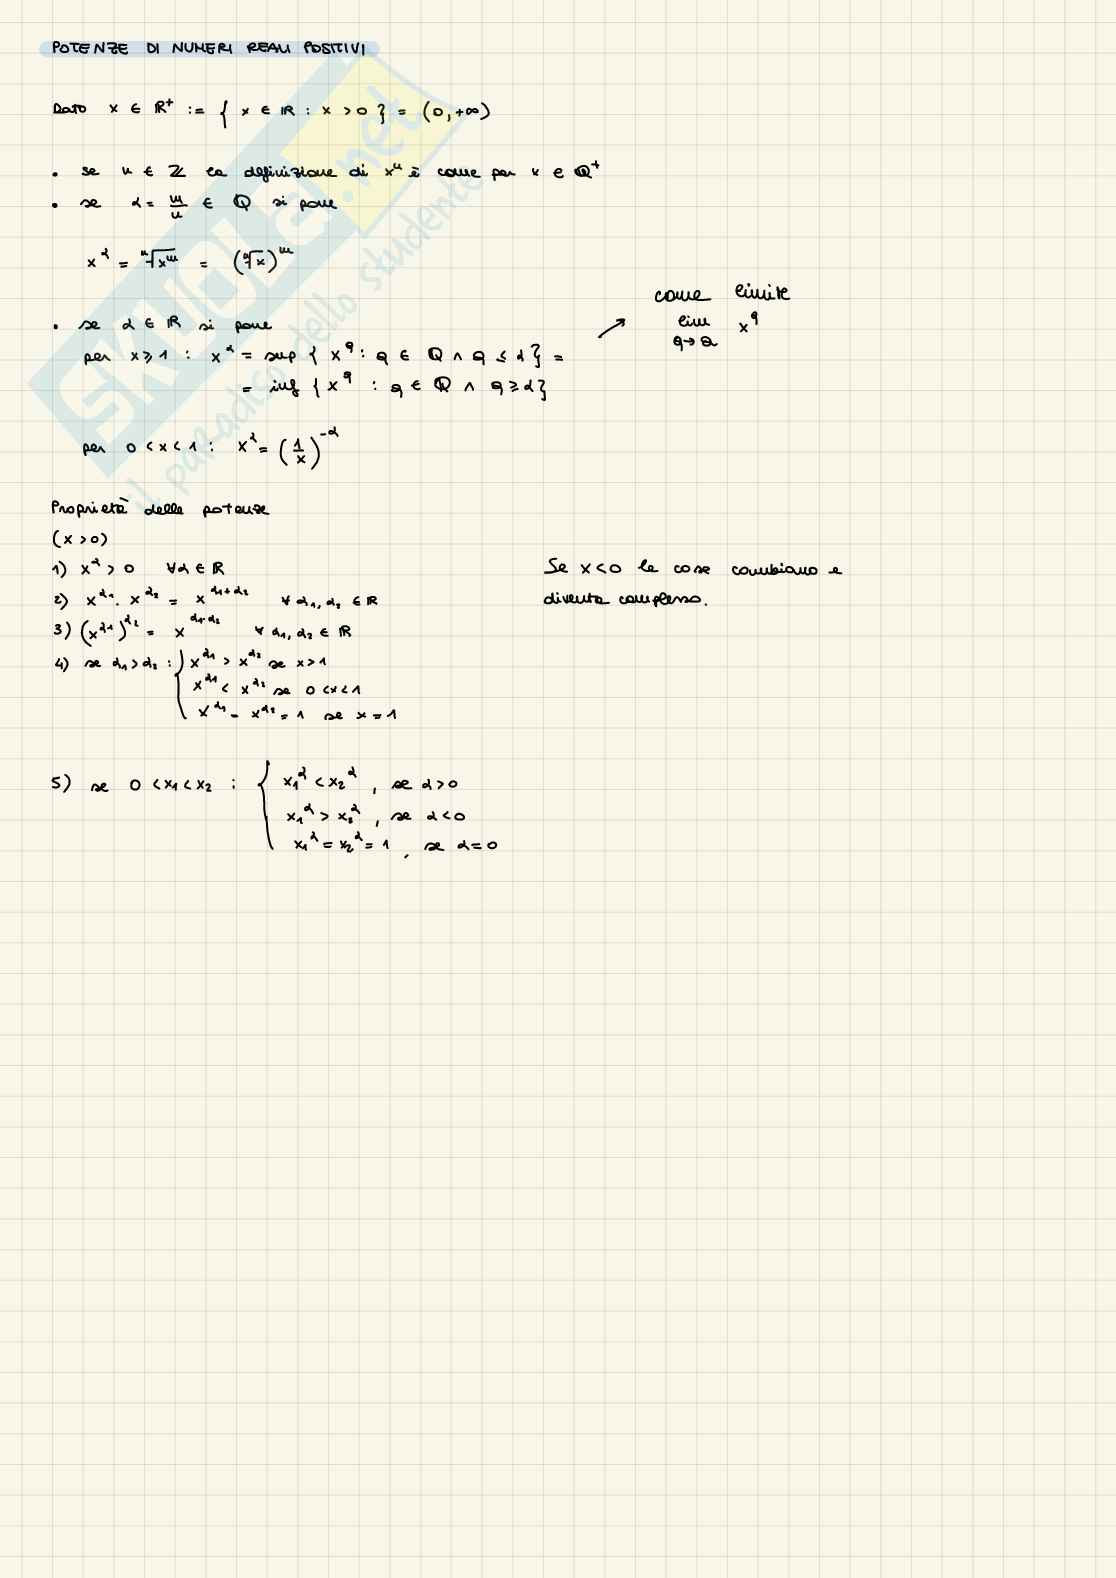 POTENZE DI NUMERI REALI POSITIVI
Dato x ∈ ℝ⁺ := { x ∈ ℝ : x > 0 } = (0, +∞)
• se n ∈ ℤ la definizione di xⁿ è come per x ∈ ℚ⁺
• se α = m/n ∈ ℚ si pone
x^α = ⁿ√(x^m) = (ⁿ√x)^m
come limite
• se α ∈ ℝ si pone
↗ lim_{q→a} x^q
per x ≥ 1 : x^α = sup { x^q : q ∈ ℚ ∧ q ≤ α } =
= inf { x^q : q ∈ ℚ ∧ q ≥ α }
per 0 < x < 1 : x^α = (1/x)^{-α}
Proprietà delle potenze
(x > 0)
1) x^α > 0 ∀α ∈ ℝ
2) x^{α₁} · x^{α₂} = x^{α₁+α₂} ∀ α₁, α₂ ∈ ℝ
3) (x^{α₁})^{α₂} = x^{α₁·α₂} ∀ α₁, α₂ ∈ ℝ
4) se α₁ > α₂ : { x^{α₁} > x^{α₂} se x > 1
x^{α₁} < x^{α₂} se 0 < x < 1
x^{α₁} = x^{α₂} = 1 se x = 1
Se x < 0 le cose cambiano e
diventa complesso.
5) se 0 < x₁ < x₂ : { x₁^α < x₂^α , se α > 0
x₁^α > x₂^α , se α < 0
x₁^α = x₂^α = 1 , se α = 0
SKUOLA.net
il paradiso dello studente